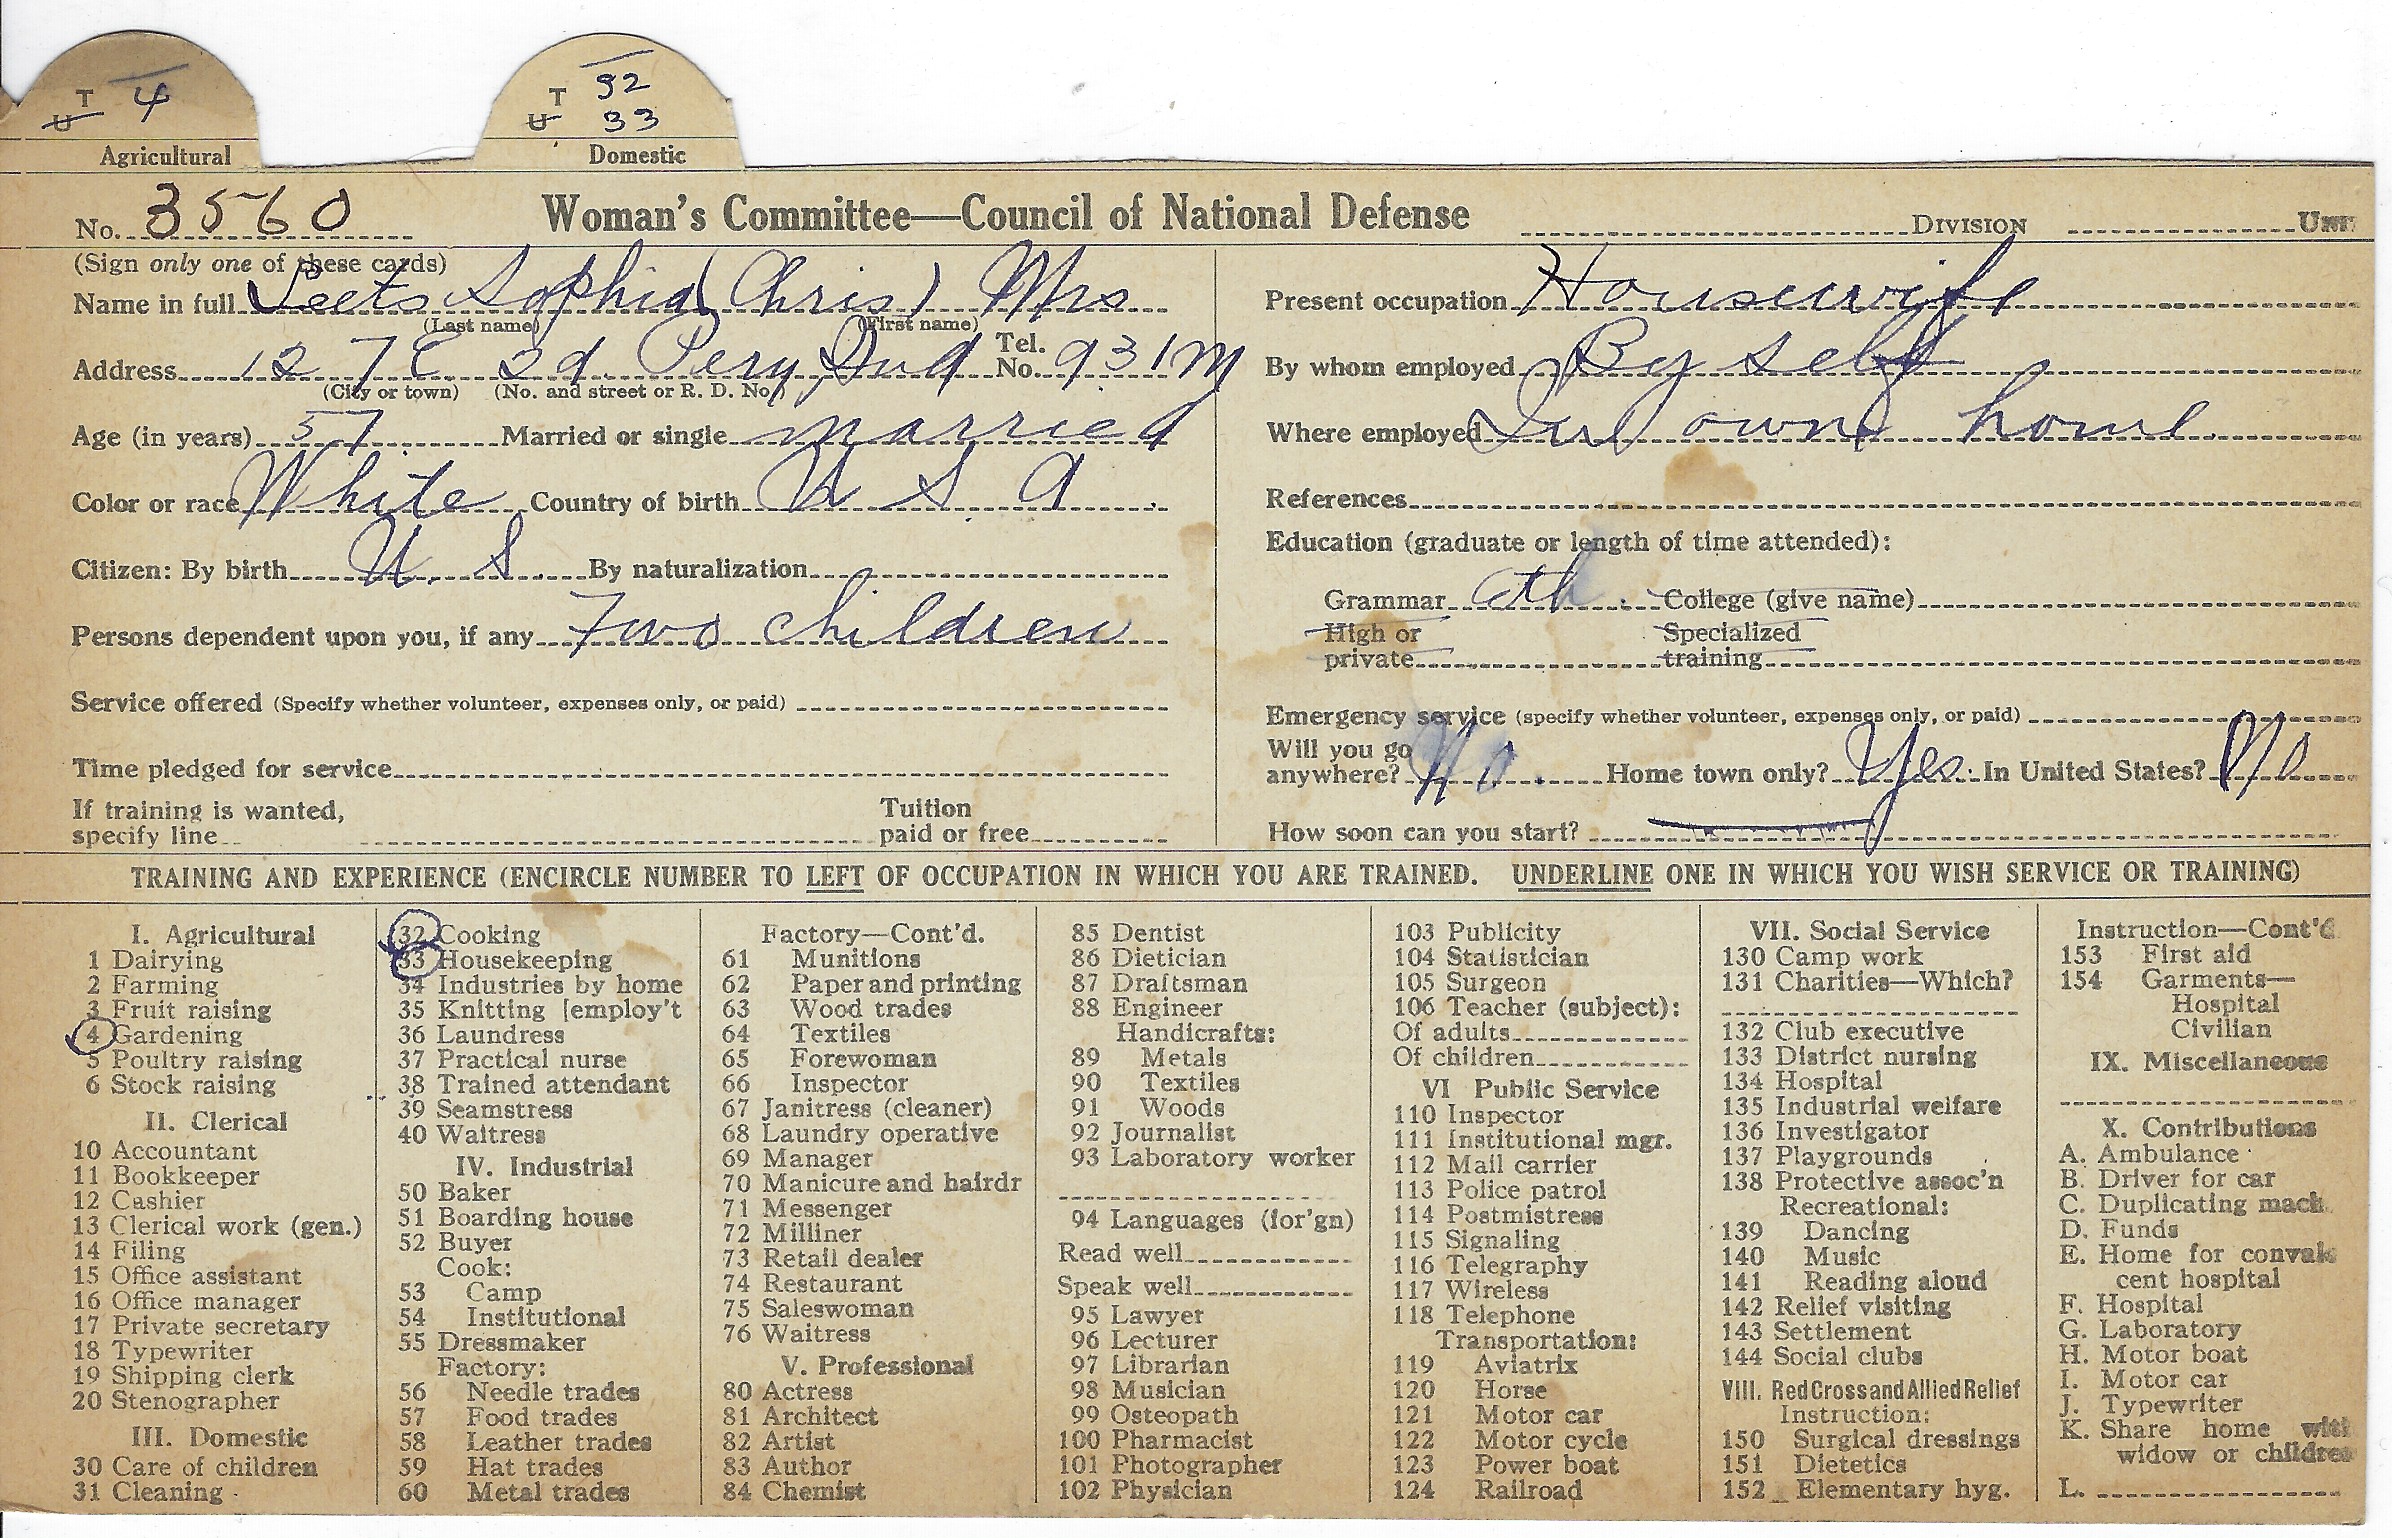 T 4
U
Agricultural
T 32
U 33
Domestic
No. 3560 Woman's Committee—Council of National Defense DIVISION UNIT
(Sign only one of these cards)
Name in full Peets Sophia (Chris) Mrs
(Last name) (First name)
Address 127 E 2d. Peru, Ind Tel. No. 931M
(City or town) (No. and street or R. D. No.)
Age (in years) 57 Married or single married
Color or race White Country of birth U S. A.
Citizen: By birth U. S. By naturalization
Persons dependent upon you, if any Two children
Service offered (Specify whether volunteer, expenses only, or paid)
Time pledged for service
If training is wanted,
specify line Tuition paid or free
Present occupation Housewife
By whom employed By self
Where employed own home
References
Education (graduate or length of time attended):
Grammar College (give name)
High or private Specialized training
Emergency service (specify whether volunteer, expenses only, or paid)
Will you go anywhere? No. Home town only? Yes. In United States? No
How soon can you start?
TRAINING AND EXPERIENCE (ENCIRCLE NUMBER TO LEFT OF OCCUPATION IN WHICH YOU ARE TRAINED. UNDERLINE ONE IN WHICH YOU WISH SERVICE OR TRAINING)
I. Agricultural
1 Dairying
2 Farming
3 Fruit raising
4 Gardening
5 Poultry raising
6 Stock raising
II. Clerical
10 Accountant
11 Bookkeeper
12 Cashier
13 Clerical work (gen.)
14 Filing
15 Office assistant
16 Office manager
17 Private secretary
18 Typewriter
19 Shipping clerk
20 Stenographer
III. Domestic
30 Care of children
31 Cleaning
32 Cooking
33 Housekeeping
34 Industries by home
35 Knitting [employ't
36 Laundress
37 Practical nurse
38 Trained attendant
39 Seamstress
40 Waitress
IV. Industrial
50 Baker
51 Boarding house
52 Buyer
Cook:
53 Camp
54 Institutional
55 Dressmaker
Factory:
56 Needle trades
57 Food trades
58 Leather trades
59 Hat trades
60 Metal trades
Factory—Cont'd.
61 Munitions
62 Paper and printing
63 Wood trades
64 Textiles
65 Forewoman
66 Inspector
67 Janitress (cleaner)
68 Laundry operative
69 Manager
70 Manicure and hairdr
71 Messenger
72 Milliner
73 Retail dealer
74 Restaurant
75 Saleswoman
76 Waitress
V. Professional
80 Actress
81 Architect
82 Artist
83 Author
84 Chemist
85 Dentist
86 Dietician
87 Draftsman
88 Engineer
Handicrafts:
89 Metals
90 Textiles
91 Woods
92 Journalist
93 Laboratory worker
94 Languages (for'gn)
Read well
Speak well
95 Lawyer
96 Lecturer
97 Librarian
98 Musician
99 Osteopath
100 Pharmacist
101 Photographer
102 Physician
103 Publicity
104 Statistician
105 Surgeon
106 Teacher (subject):
Of adults
Of children
VI Public Service
110 Inspector
111 Institutional mgr.
112 Mail carrier
113 Police patrol
114 Postmistress
115 Signaling
116 Telegraphy
117 Wireless
118 Telephone
Transportation:
119 Aviatrix
120 Horse
121 Motor car
122 Motor cycle
123 Power boat
124 Railroad
VII. Social Service
130 Camp work
131 Charities—Which?
132 Club executive
133 District nursing
134 Hospital
135 Industrial welfare
136 Investigator
137 Playgrounds
138 Protective assoc'n
Recreational:
139 Dancing
140 Music
141 Reading aloud
142 Relief visiting
143 Settlement
144 Social clubs
VIII. Red Cross and Allied Relief
Instruction:
150 Surgical dressings
151 Dietetics
152 Elementary hyg.
Instruction—Cont'd
153 First aid
154 Garments—
Hospital
Civilian
IX. Miscellaneous
X. Contributions
A. Ambulance
B. Driver for car
C. Duplicating mach.
D. Funds
E. Home for convales
cent hospital
F. Hospital
G. Laboratory
H. Motor boat
I. Motor car
J. Typewriter
K. Share home with
widow or children
L.